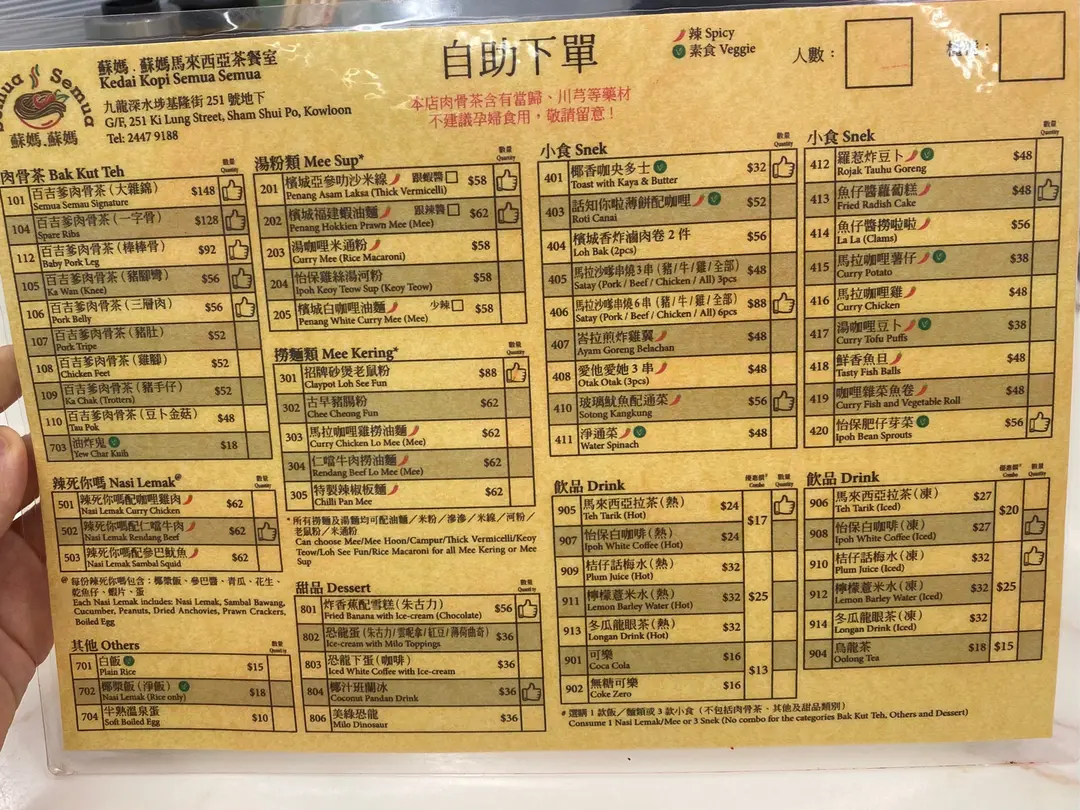 Semua Semua
蘇媽.蘇媽
蘇媽．蘇媽馬來西亞茶餐室
Kedai Kopi Semua Semua
九龍深水埗基隆街 251 號地下
G/F, 251 Ki Lung Street, Sham Shui Po, Kowloon
Tel: 2447 9188
自助下單
本店肉骨茶含有當歸、川芎等藥材
不建議孕婦食用，敬請留意！
辣 Spicy
素食 Veggie
人數：
肉骨茶 Bak Kut Teh 數量 Quantity
101 百吉爹肉骨茶（大雜錦） $148
Semua Semua Signature
104 百吉爹肉骨茶（一字骨） $128
Spare Ribs
112 百吉爹肉骨茶（棒棒骨） $92
Baby Pork Leg
105 百吉爹肉骨茶（豬腳彎） $56
Ka Wan (Knee)
106 百吉爹肉骨茶（三層肉） $56
Pork Belly
107 百吉爹肉骨茶（豬肚） $52
Pork Tripe
108 百吉爹肉骨茶（雞腳） $52
Chicken Feet
109 百吉爹肉骨茶（豬手仔） $52
Ka Chak (Trotters)
110 百吉爹肉骨茶（豆卜金菇） $48
Tau Pok
703 油炸鬼 $18
Yew Char Kuih
辣死你嗎 Nasi Lemak@ 數量 Quantity
501 辣死你嗎配咖哩雞肉 $62
Nasi Lemak Curry Chicken
502 辣死你嗎配仁當牛肉 $62
Nasi Lemak Rendang Beef
503 辣死你嗎配參巴魷魚 $62
Nasi Lemak Sambal Squid
@ 每份辣死你嗎包含：椰漿飯、參巴醬、青瓜、花生、
乾魚仔、蝦片、蛋
Each Nasi Lemak includes: Nasi Lemak, Sambal Bawang,
Cucumber, Peanuts, Dried Anchovies, Prawn Crackers,
Boiled Egg
其他 Others 數量 Quantity
701 白飯 $15
Plain Rice
702 椰漿飯（淨飯） $18
Nasi Lemak (Rice only)
704 半熟溫泉蛋 $10
Soft Boiled Egg
湯粉類 Mee Sup* 數量 Quantity
201 檳城亞參叻沙米線 跟蝦醬 $58
Penang Asam Laksa (Thick Vermicelli)
202 檳城福建蝦油麵 跟辣醬 $62
Penang Hokkien Prawn Mee (Mee)
203 湯咖哩米通粉 $58
Curry Mee (Rice Macaroni)
204 怡保雞絲湯河粉 $58
Ipoh Keoy Teow Sup (Keoy Teow)
205 檳城白咖哩油麵 少辣 $58
Penang White Curry Mee (Mee)
撈麵類 Mee Kering* 數量 Quantity
301 招牌砂煲老鼠粉 $88
Claypot Loh See Fun
302 古早豬腸粉 $62
Chee Cheong Fun
303 馬拉咖哩雞撈油麵 $62
Curry Chicken Lo Mee (Mee)
304 仁噹牛肉撈油麵 $62
Rendang Beef Lo Mee (Mee)
305 特製辣椒板麵 $62
Chilli Pan Mee
* 所有撈麵及湯麵均可配油麵／米粉／滲滲／米線／河粉／
老鼠粉／米通粉
Can choose Mee/Mee Hoon/Campur/Thick Vermicelli/Keoy
Teow/Loh See Fun/Rice Macaroni for all Mee Kering or Mee
Sup
甜品 Dessert 數量 Quantity
801 炸香蕉配雪糕（朱古力） $56
Fried Banana with Ice-cream (Chocolate)
802 恐龍蛋（朱古力/雲呢拿/紅豆/薄荷曲奇） $36
Ice-cream with Milo Toppings
803 恐龍下蛋（咖啡） $36
Iced White Coffee with Ice-cream
804 椰汁班蘭冰 $36
Coconut Pandan Drink
806 美綠恐龍 $36
Milo Dinosaur
小食 Snek 數量 Quantity
401 椰香咖央多士 $32
Toast with Kaya & Butter
403 話知你啦薄餅配咖哩 $52
Roti Canai
404 檳城香炸滷肉卷 2 件 $56
Loh Bak (2pcs)
405 馬拉沙嗲串燒 3 串（豬/牛/雞/全部） $48
Satay (Pork / Beef / Chicken / All) 3pcs
406 馬拉沙嗲串燒 6 串（豬/牛/雞/全部） $88
Satay (Pork / Beef / Chicken / All) 6pcs
407 峇拉煎炸雞翼 $48
Ayam Goreng Belachan
408 愛他愛她 3 串 $48
Otak Otak (3pcs)
410 玻璃魷魚配通菜 $56
Sotong Kangkung
411 淨通菜 $48
Water Spinach
小食 Snek 數量 Quantity
412 羅惹炸豆卜 $48
Rojak Tauhu Goreng
413 魚仔醬蘿蔔糕 $48
Fried Radish Cake
414 魚仔醬撈啦啦 $56
La La (Clams)
415 馬拉咖哩薯仔 $38
Curry Potato
416 馬拉咖哩雞 $48
Curry Chicken
417 湯咖哩豆卜 $38
Curry Tofu Puffs
418 鮮香魚旦 $48
Tasty Fish Balls
419 咖哩雜菜魚卷 $48
Curry Fish and Vegetable Roll
420 怡保肥仔芽菜 $56
Ipoh Bean Sprouts
飲品 Drink 優惠價# Combo 數量 Quantity
905 馬來西亞拉茶（熱） $24
Teh Tarik (Hot)
$17
907 怡保白咖啡（熱） $24
Ipoh White Coffee (Hot)
909 桔仔話梅水（熱） $32
Plum Juice (Hot)
911 檸檬薏米水（熱） $32
Lemon Barley Water (Hot)
$25
913 冬瓜龍眼茶（熱） $32
Longan Drink (Hot)
901 可樂 $16
Coca Cola
$13
902 無糖可樂 $16
Coke Zero
飲品 Drink 優惠價# Combo 數量 Quantity
906 馬來西亞拉茶（凍） $27
Teh Tarik (Iced)
$20
908 怡保白咖啡（凍） $27
Ipoh White Coffee (Iced)
910 桔仔話梅水（凍） $32
Plum Juice (Iced)
912 檸檬薏米水（凍） $32
Lemon Barley Water (Iced)
$25
914 冬瓜龍眼茶（凍） $32
Longan Drink (Iced)
904 烏龍茶 $18 $15
Oolong Tea
# 選購 1 款飯／麵類或 3 款小食（不包括肉骨茶、其他及甜品類別）
Consume 1 Nasi Lemak/Mee or 3 Snek (No combo for the categories Bak Kut Teh, Others and Dessert)